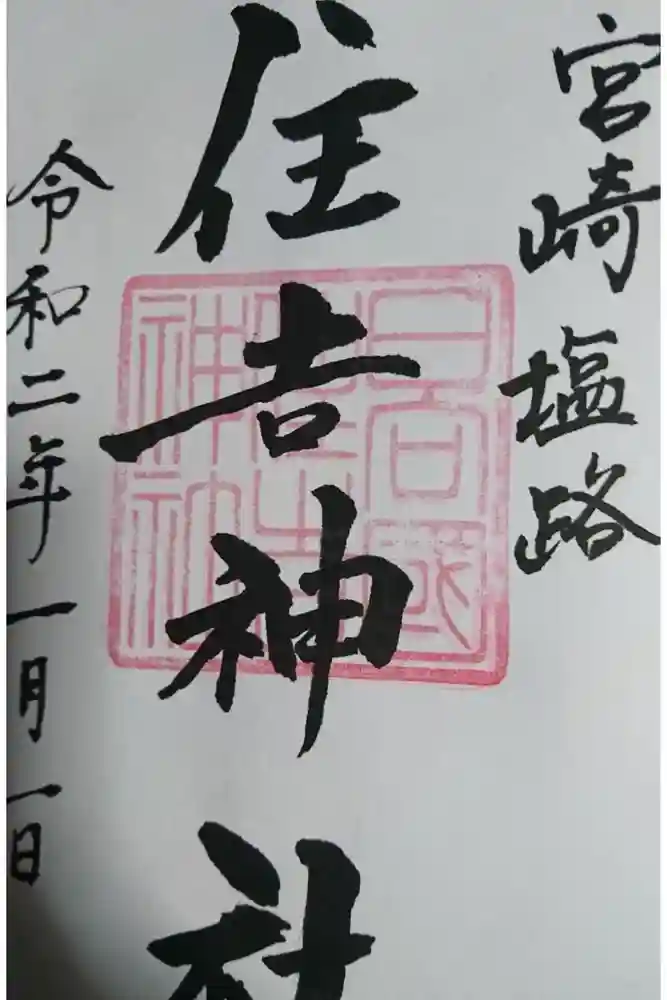 宮崎 塩路
住吉神社
令和二年一月一日
日向国
住吉
神社